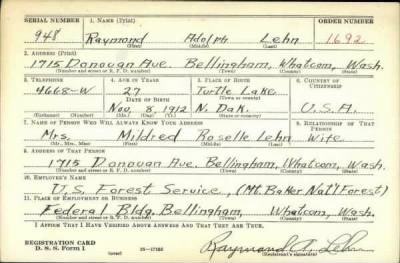 SERIAL NUMBER 1. NAME (Print) ORDER NUMBER
948 Raymond Adolph Lehn 1692
(First) (Middle) (Last)
2. ADDRESS (Print)
1715 Donovan Ave. Bellingham, Whatcom, Wash.
(Number and street or R. F. D. number) (Town) (County) (State)
3. TELEPHONE 4. AGE IN YEARS 5. PLACE OF BIRTH 6. COUNTRY OF CITIZENSHIP
4668-W 27 Turtle Lake
DATE OF BIRTH (Town or county)
Nov. 8, 1912 N. Dak. U.S.A.
(Mo.) (Day) (Yr.) (State or country)
7. NAME OF PERSON WHO WILL ALWAYS KNOW YOUR ADDRESS 8. RELATIONSHIP OF THAT PERSON
Mrs. Mildred Roselle Lehn Wife
(Mr., Mrs., Miss) (First) (Middle) (Last)
9. ADDRESS OF THAT PERSON
1715 Donovan Ave. Bellingham, Whatcom, Wash.
(Number and street or R. F. D. number) (Town) (County) (State)
10. EMPLOYER'S NAME
U.S. Forest Service, (Mt. Baker Nat'l Forest)
11. PLACE OF EMPLOYMENT OR BUSINESS
Federal Bldg. Bellingham, Whatcom, Wash.
(Number and street or R. F. D. number) (Town) (County) (State)
I AFFIRM THAT I HAVE VERIFIED ABOVE ANSWERS AND THAT THEY ARE TRUE.
REGISTRATION CARD
D. S. S. Form 1 (over) 16-17105 Raymond A. Lehn
(Registrant's signature)